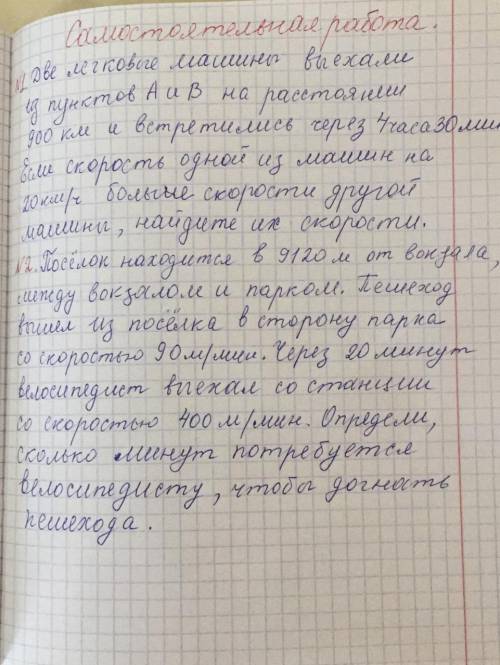 Самостоятельная работа.
№1. Две легковые машины выехали
из пунктов А и В на расстоянии
900 км и встретились через 4 часа 30 мин
Если скорость одной из машин на
20 км/ч больше скорости другой
машины, найдите их скорости.
№2. Посёлок находится в 9120 м от вокзала,
между вокзалом и парком. Пешеход
вышел из посёлка в сторону парка
со скоростью 90 м/мин. Через 20 минут
велосипедист выехал со станции
со скоростью 400 м/мин. Определи,
сколько минут потребуется
велосипедисту, чтобы догнать
пешехода.